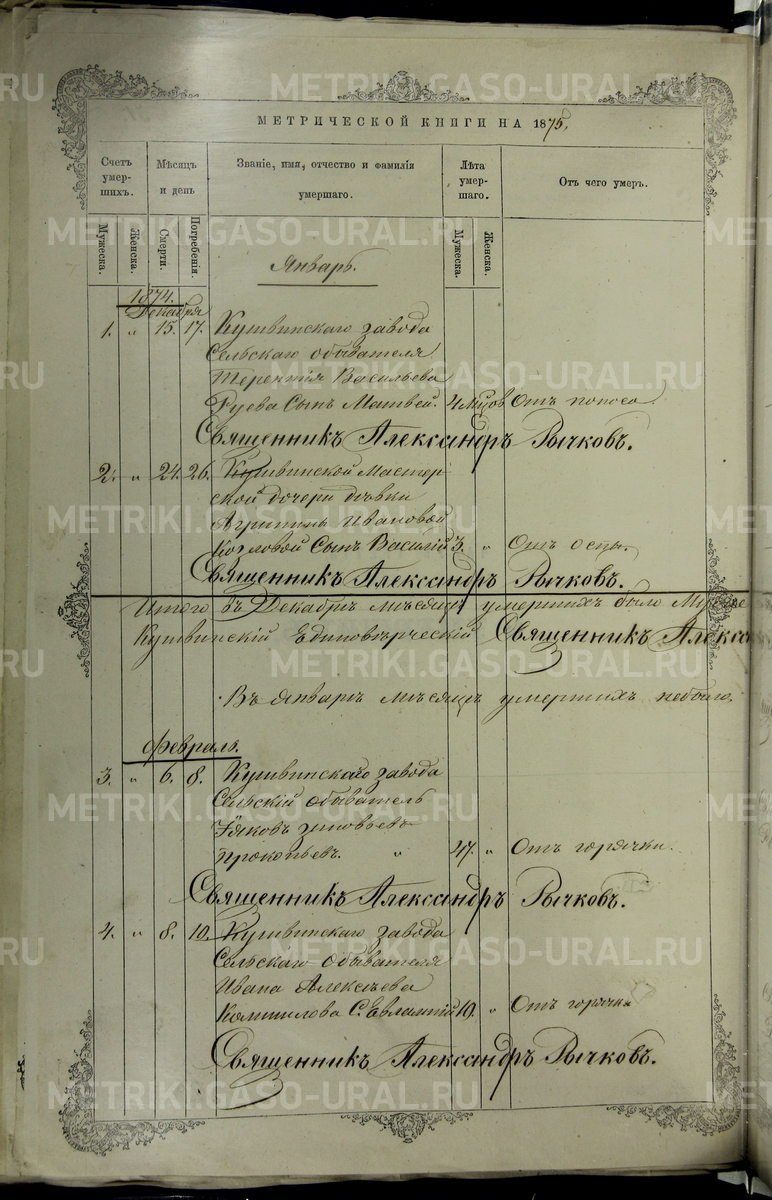 МЕТРИЧЕСКОЙ КНИГИ НА 1875.
Счетъ умершихъ.
Мѣсяцъ и день
Званіе, имя, отчество и фамилія умершаго.
Лѣта умершаго.
Отъ чего умеръ.
Мужеска.
Женска.
Смерти.
Погребенія.
Мужеска.
Женска.
Январь.
1874.
Декабря
1. " 15. 17. Кушвинскаго завода
Сельскаго обывателя
Терентія Васильева
Сынъ Матвей. 4 Отъ поноса
Священникъ Александръ Рычковъ.
2. " 24. 26. Кушвинской Мастер-
ской дочери дѣвки
Агрипины Ивановой
Козловой Сынъ Василій 3. " Отъ оспы.
Священникъ Александръ Рычковъ.
Итого въ Декабрѣ мѣсяцѣ умершихъ было
Кушвинскій Единовѣрческій Священникъ Алекса
Въ Январѣ мѣсяцѣ умершихъ небыло.
Февраль.
3. " 6. 8. Кушвинскаго завода
Сельскій обыватель
Яковъ Зиновьевъ
Прокопьевъ. " 47. " Отъ горячки.
Священникъ Александръ Рычковъ.
4. " 8. 10. Кушвинскаго завода
Сельскаго обывателя
Ивана Алексѣева
С. Евлампій 19. " Отъ горячки
Священникъ Александръ Рычковъ.
METRIKI.GASO-URAL.RU